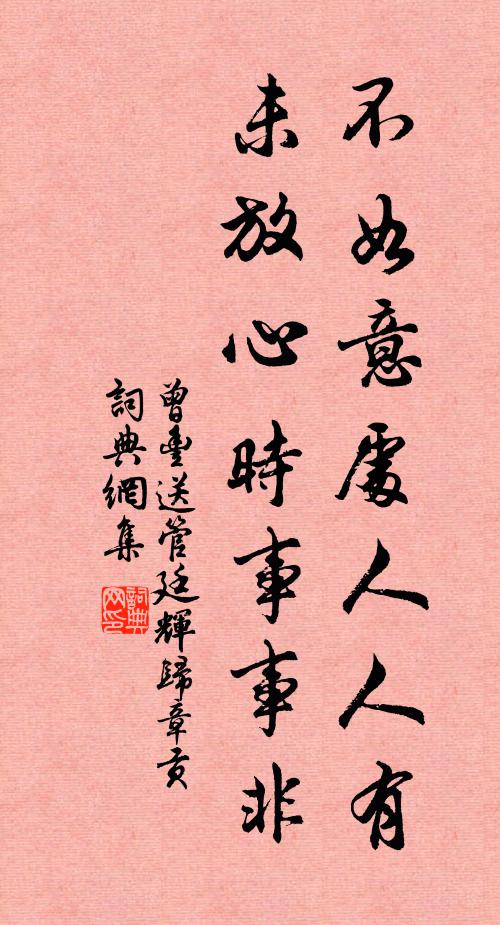 不如意處人人有
未放心時事事非
曾豐送管廷輝歸章貢
詞典網集
詞典
网印